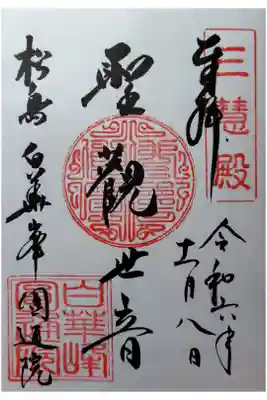 奉拝
三慧殿
令和六年
十一月八日
聖觀世音
松島 白華峰 圓通院
白華峰
圓通院